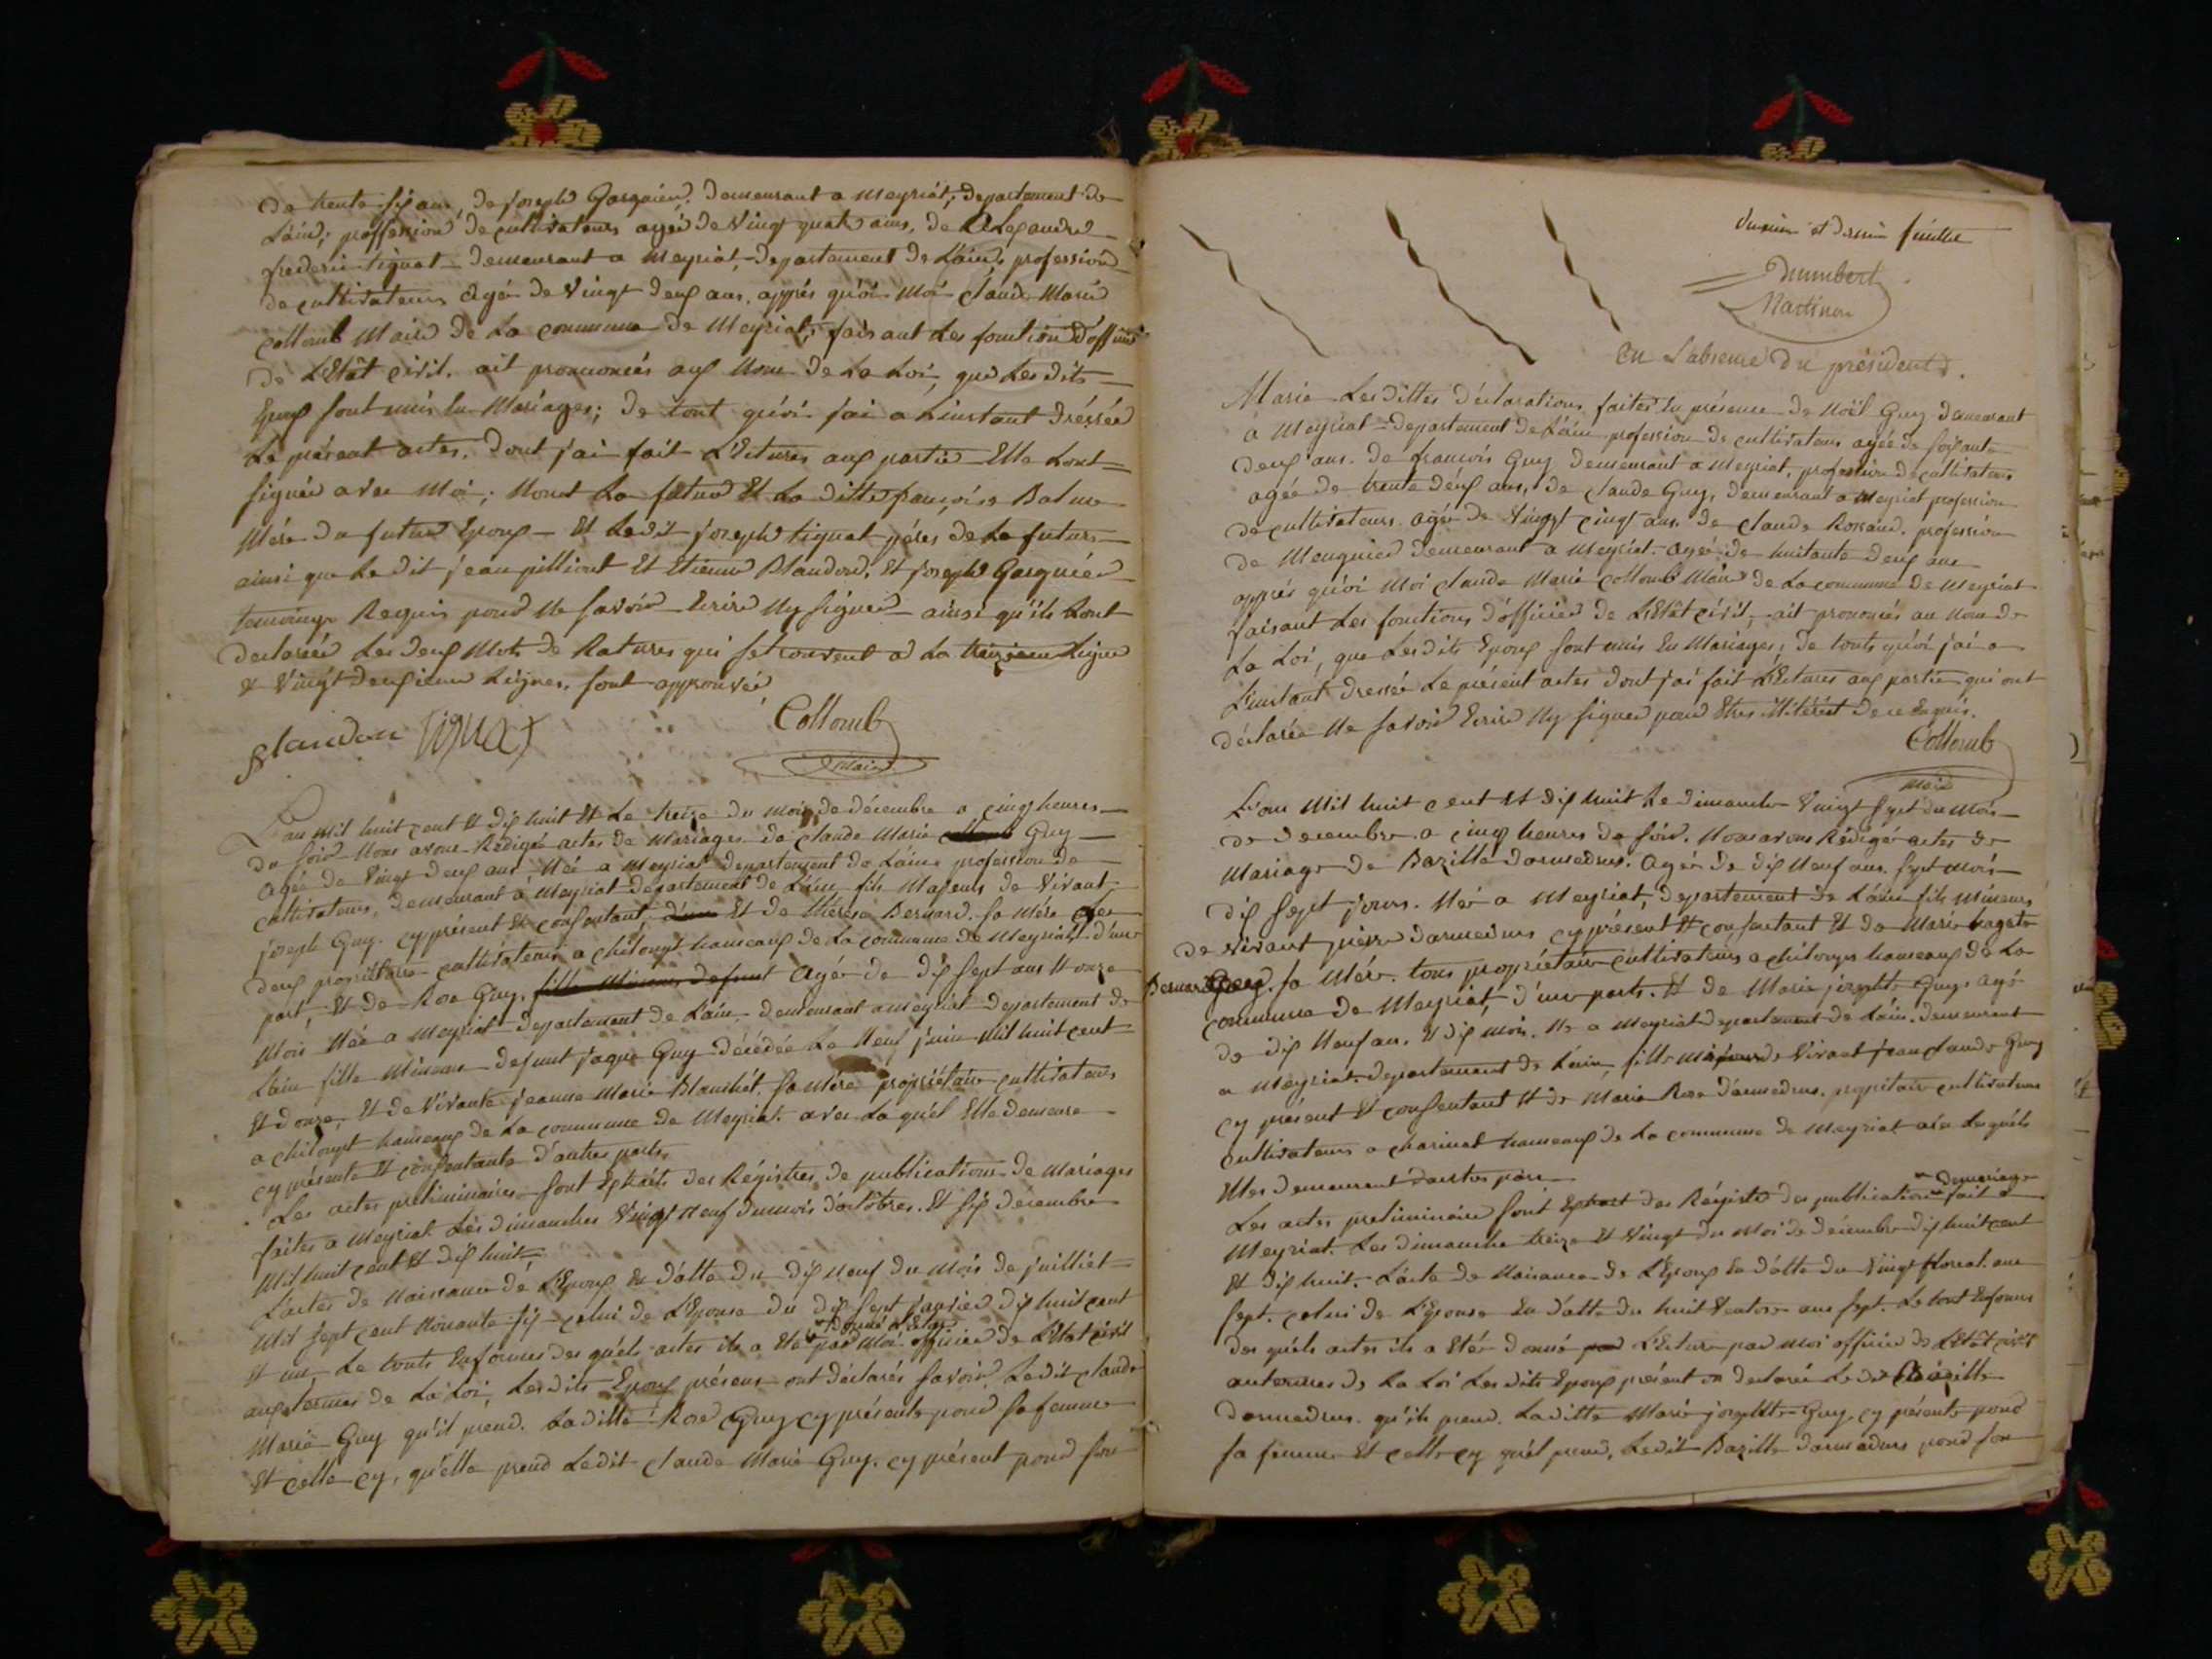 de trente six ans, de joseph Gorguier, demeurant a Meyriat, departement de
L'ain; proffession de cultivateurs agée de Vingt quatr ains, de Alexandre
frederic tignat demeurant a Meyriat, departement de L'ain, profession
de cultivateurs agée de Vingt deux ans, apprés qu'oi Moi Claude Marie
Collomb Maire de La commune de Meyriat, faisant Les fonction D'officier
de L'Etât civil. ait prononcées aux Nom de La Loi, que Les dits
Epoux sont unis En Mariages; de tout qu'oi j'ai a L'instant dréssée
Le présent actes, dont j'ai fait L'Ectures aux partie Elle Lont
signée avec Moi; Nont La futur Et La ditte françoise Balme
Mére du futur Epoux Et Ledit joseph tignat péres de La future
ainsi que Le dit jean pilliout Et Etienne Blandon, Et joseph Gorguier
temoings Requis pour Ne savoir Ecrire Ny signer ainsi qu'ils Lont
declarée Les deux Mots de Ratures qui se trouvent a La treizieme Ligne
& Vingt deuxieme Leignes, sont approuvée
Blandon tignat Collomb
maire
L'an Mil huit cent Et dix huit Et Le treize du Mois de décembre a cinq heures
du soir Nous avons Rédigé actes de Mariages de Claude Marie Guy
agée de Vingt deux ans Née a Meyriat departement de L'ain profession de
cultivateurs, demeurant a Meyriat departement de L'ain fils Majeurs de Vivant
joseph Guy. cy présent Et consentant, d'une Et de théresse Bernard. sa Mére Les
deux propriétaire cultivateurs a chiloup hameaux de La commune de Meyriat d'une
part, Et de Rose Guy. fille Mineure defunt agée de dix sept ans Et onze
Mois Née a Meyriat departement de L'ain, demeurant a Meyriat departement de
L'ain fille Mineure defunt jaque Guy décédée Le Neuf juin Mil huit cent
Et douze, Et de Vivante jeanne Marie Blanchet. sa Mére propriétaire cultivateurs
a chiloupt hameaux de La commune de Meyriat. avec La quel Elle demeure
cy présente Et consentante d'autres parts,
Les actes preliminaires sont Extraits des Régistres de publications de Mariages
faites a Meyriat Les dimanches Vingt Neuf du mois d'octobres. Et six decembre
Mil huit cent Et dix huit,
L'actes de Naissance de L'Epoux En d'atte du dix Neuf du Mois de juilliet
Mil sept cent Nonante six celui de L'Epouse du dix sept janvier dix huit cent
Et un, Le touts En formes des quels actes ils a Eté donné L'Ectur par Moi officier de L'Etat civil
aux termes de La Loi, Lesdits Epoux présens ont déclarés savoir, Ledit Claude
Marie Guy qu'il prend. La ditte Rose Guy cy présente pour sa femme
Et celle cy, qu'elle prend Ledit Claude Marie Guy. cy présent pour son
et dernier feuillet
Martinon
En L'absence du président.
Marie Les dittes déclarations faites En présence de Noël Guy demeurant
à Meyriat departement de L'ain profession de cultivateurs agée de soixante
deux ans. de francois Guy demeurant a Meyriat, profession de cultivateurs
agée de trente deux ans, de Claude Guy, demeurant a Meyriat profession
de cultivateurs agée de Vingt cinqt ans de Claude Rossand. profession
de Meugnier demeurant a Meyriat. agée de huitante deux ans
apprés qu'oi Moi Claude Marie Collomb Maire de La commune de Meyriat
faisant Les fonctions d'officier de L'Etât civil, ait prononcés au Nom de
La Loi, que Lesdits Epoux sont unis En Mariages; de touts qu'oi j'ai a
L'instant dressée Le présent actes dont j'ai fait L'Ectures aux partie qui ont
déclarée Ne savoir Ecrire Ny signer pour Etres illitérét de ce Enquis.
Collomb
maire
L'an Mil huit cent Et dix huit Le dimanche Vingt sept du Mois
de decembre a cinq heures du soir. Nous avons Rédigé actes de
Mariage de Bazille darmedrus. agée de dix Neuf ans. sept Mois
dix sept jours. Née a Meyriat, departement de L'ain fils Mineurs
de vivant pierre darmedrus cy présent Et consentant Et de Marie
Bernard sa Mére. tous propriétaire cultivateurs a chiloups hameaux de La
commune de Meyriat, d'une parts. Et de Marie josephte Guy. agé
de dix Neuf an. Et dix mois. Né a Meyriat departement de L'ain. demeurant
a Meyriat departement de L'ain, fille de Vivant jean Claude Guy
cy présent Et consentant Et de Marie Rose darmedrus. propritaire cultivateurs
cultivateurs a charinat hameaux de La commune de Meyriat avec Lesquels
Elles demeurent d'autres pars
Les actes preliminaire sont Extrait des Régistre des publication de mariage fait a
Meyriat. Les dimanche treize Et Vingt du Moi de décembre dix huit cent
Et dix huit. L'acte de Naissance de L'Epoux En d'atte du Vingt floreal ane
sept. celui de L'Epouse En d'atte du huit Ventose ane sept. Le tout En forme
des quels actes ils a Etér donné L'Ecture par moi officier de L'Etât civil
au termes de La Loi Les dits Epoux présent on declarée Ledit Bazille
darmedrus. qu'ils prend. La ditte Marie josephtte Guy cy présente pour
sa femme Et celle cy qu'el prend, Ledit Bazille darmedrus pour son